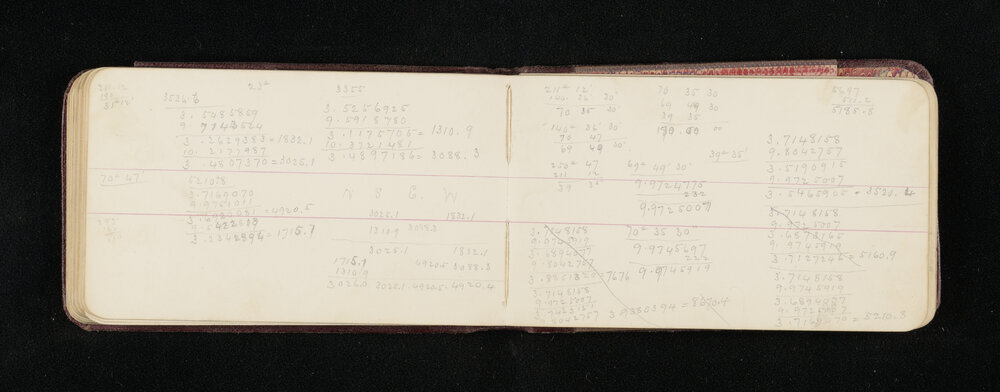 211. 12
180
31° 12'
23°
3536.6
3.5485859
9.7143524
3.2629383 = 1832.1
10.2177987
3.4807370 = 3025.1
3355
3.5256925
9.5918780
3.1175705 = 1310.9
10.3721481
3.4897186 = 3088.3
70° 47'
5210.8
3.7169070
9.9751011
3.6920081 = 4920.5
9.5422808
3.2342894 = 1715.7
N S E W
3025.1 1832.1
1310.9 3088.3
3025.1 1832.1
1715.7 4920.5 3088.3
1310.9
3026.0 3025.1 4920.5 4920.4
211° 12'
140. 36 30
70 35 30
140° 36' 30"
70 47
69 49 30
250° 47
211 12
39 35
70 35 30
69 49 30
39 35
180.00 00
69° 49' 30"
39° 35'
9.9724775
232
9.9725007
70° 35 30
9.9745697
222
9.9745919
5697
511.2
5185.8
3.7148158
9.8042757
3.5190915
9.9725007
3.5465908 = 3520.4
3.7148158
9.9725007
3.6873165
9.9745919
3.7127246 = 5160.9
3.7148158
9.9745919
3.6894077
9.9725007
3.7169070 = 5210.8
3.7148158
9.9745919
3.6894077
9.8042757
3.8851320 = 7676
3.7148158
9.9725007
3.7423151
9.8042757 3.9380394 = 8670.4